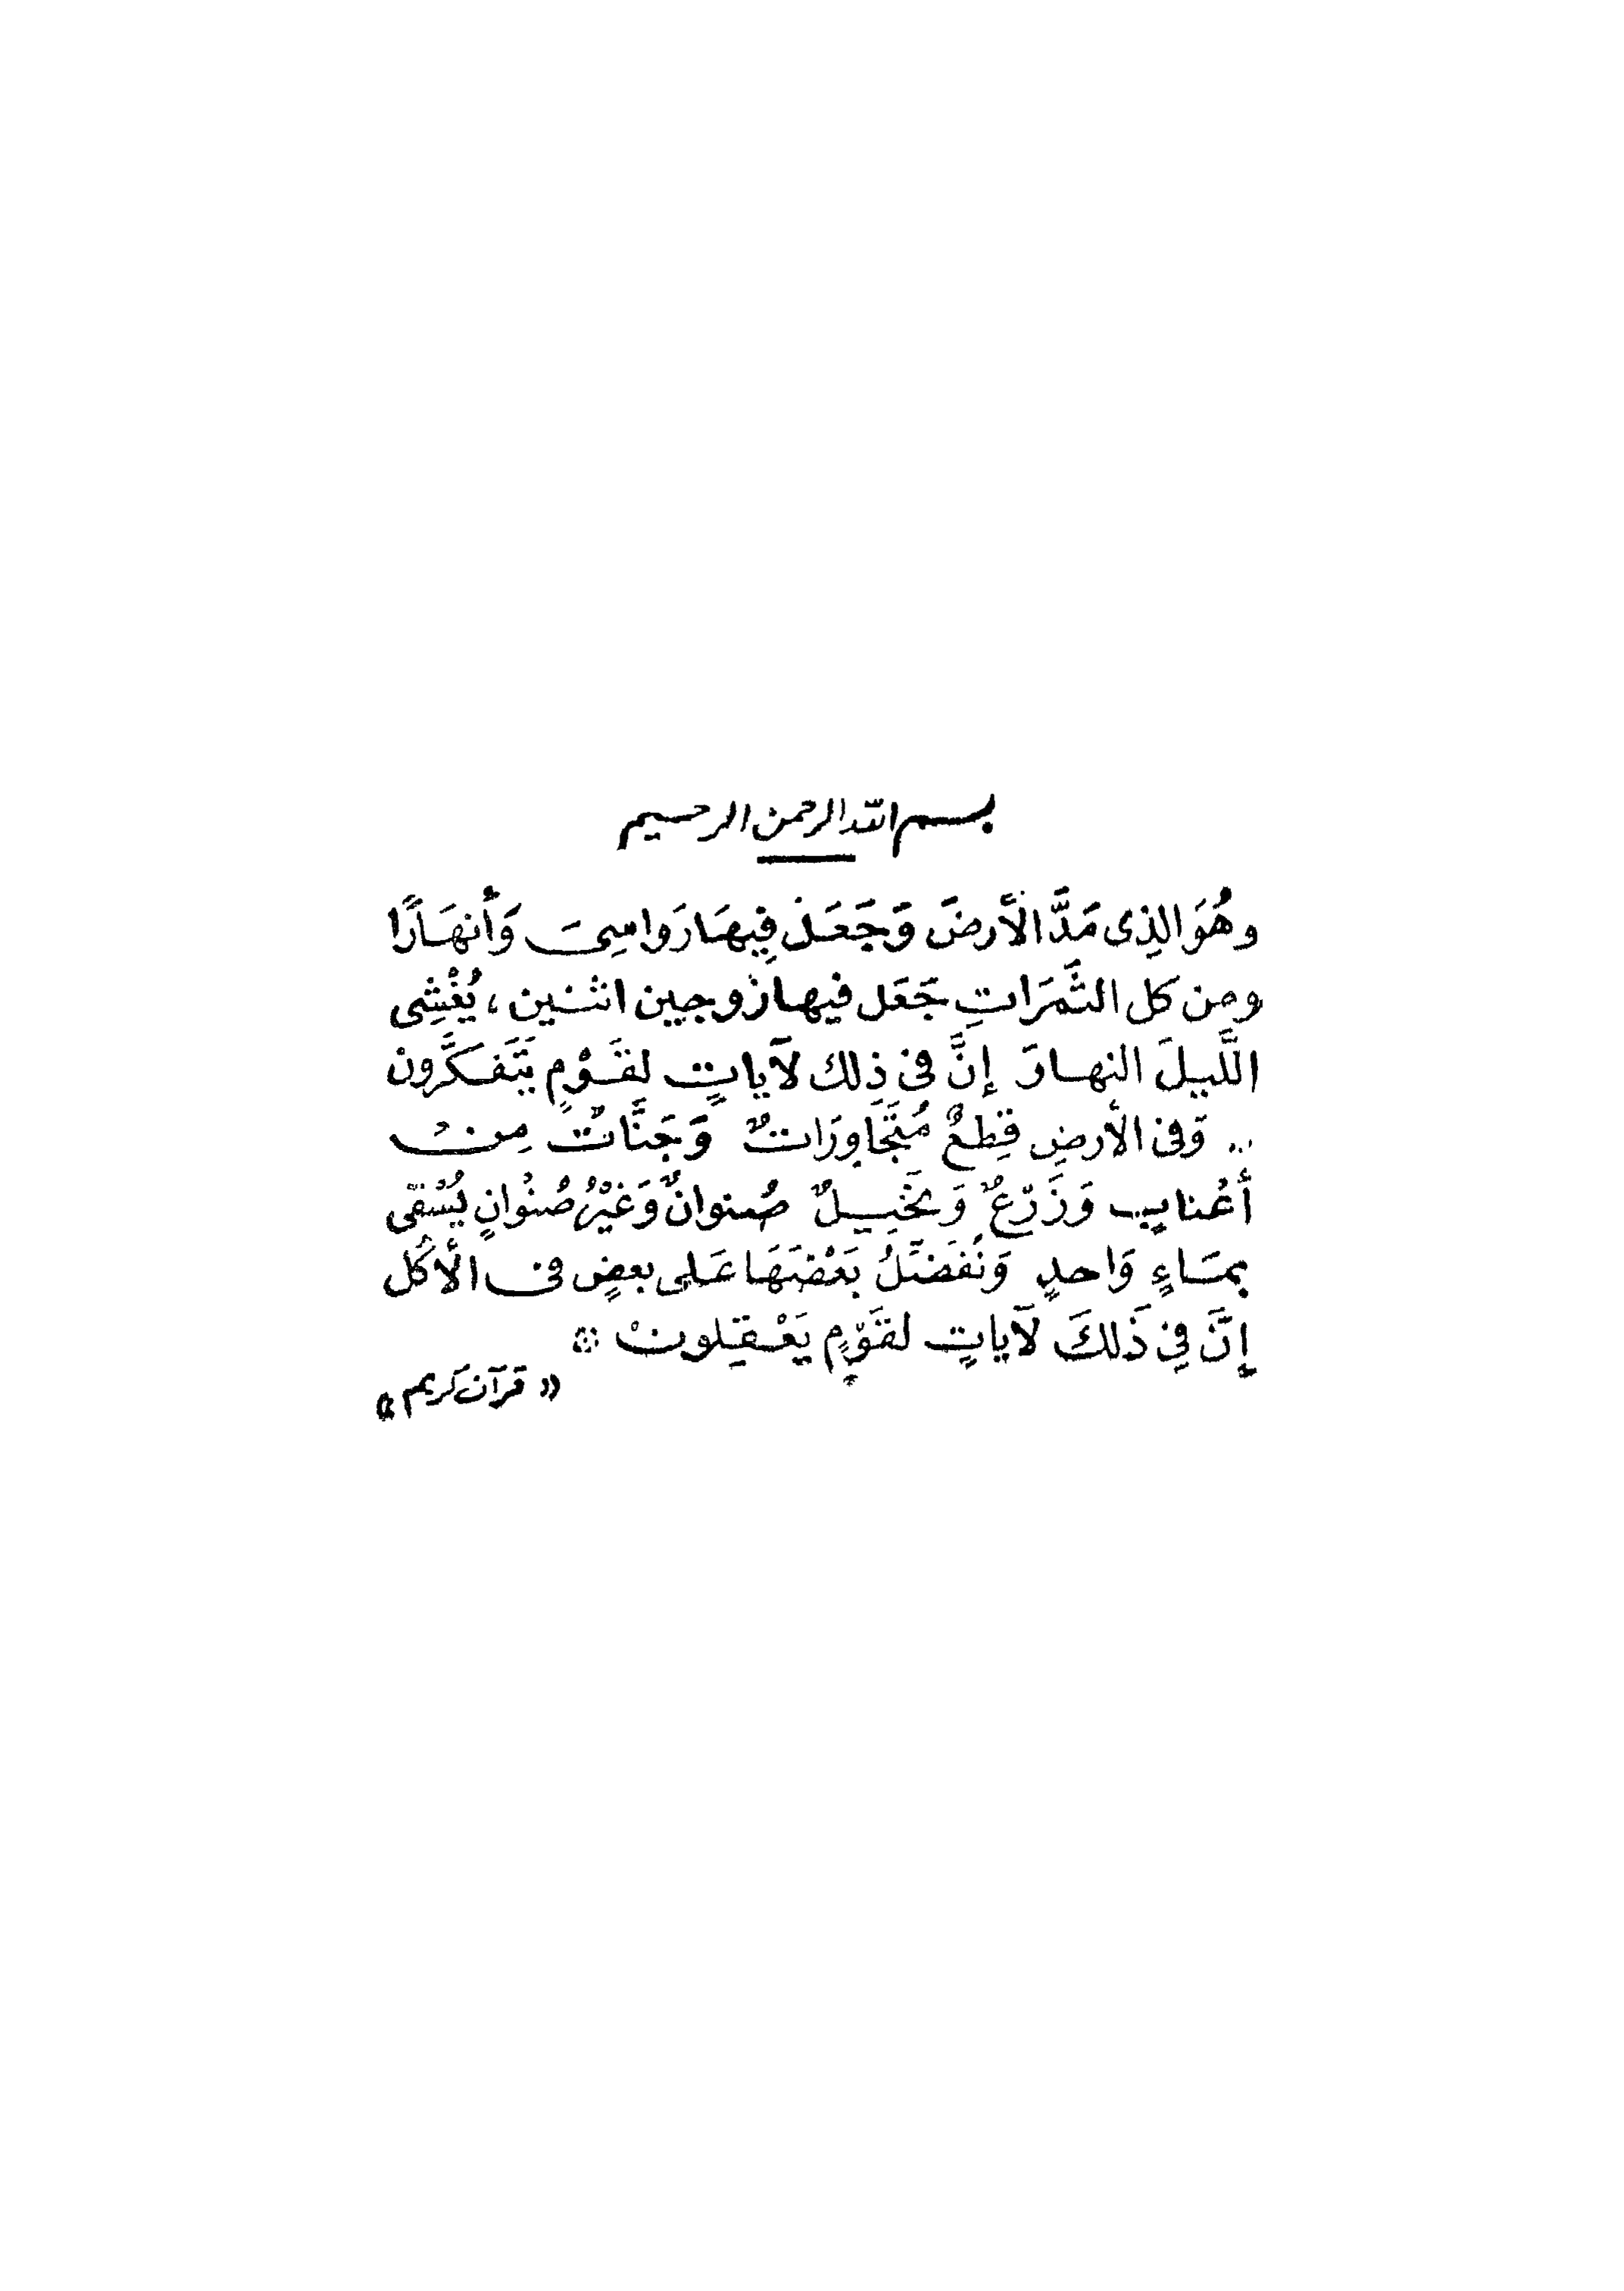 بسم الله الرحمن الرحيم
وهُوَ الذِى مَدَّ الأرضَ وَجَعَلَ فِيهَا رَواسِىَ وَأَنهَارًا
ومن كل الثَّمَرَاتِ جَعَل فيها زوجين اثنين ، يُغْشِى
اللَّيلَ النهارَ إنَّ فى ذَلك لَآياتٍ لقَوْمٍ يَتَفَكَّرون
.. وَفى الأرضِ قِطعٌ مُتَجَاوِرَاتٌ وَجَنَّاتٌ مِنْ
أَعْنابٍ وَزَرْعٌ وَنَخِيلٌ صُنوانٌ وَغَيْرُ صُنْوانٍ يُسْقَى
بمَاءٍ وَاحدٍ وَنُفَضِّلُ بَعْضَهَا عَلى بعضٍ فى الأكُل
إنَّ فِى ذَلكَ لَآياتٍ لقَوْمٍ يَعْقِلونْ ※
« قرآن كريم »